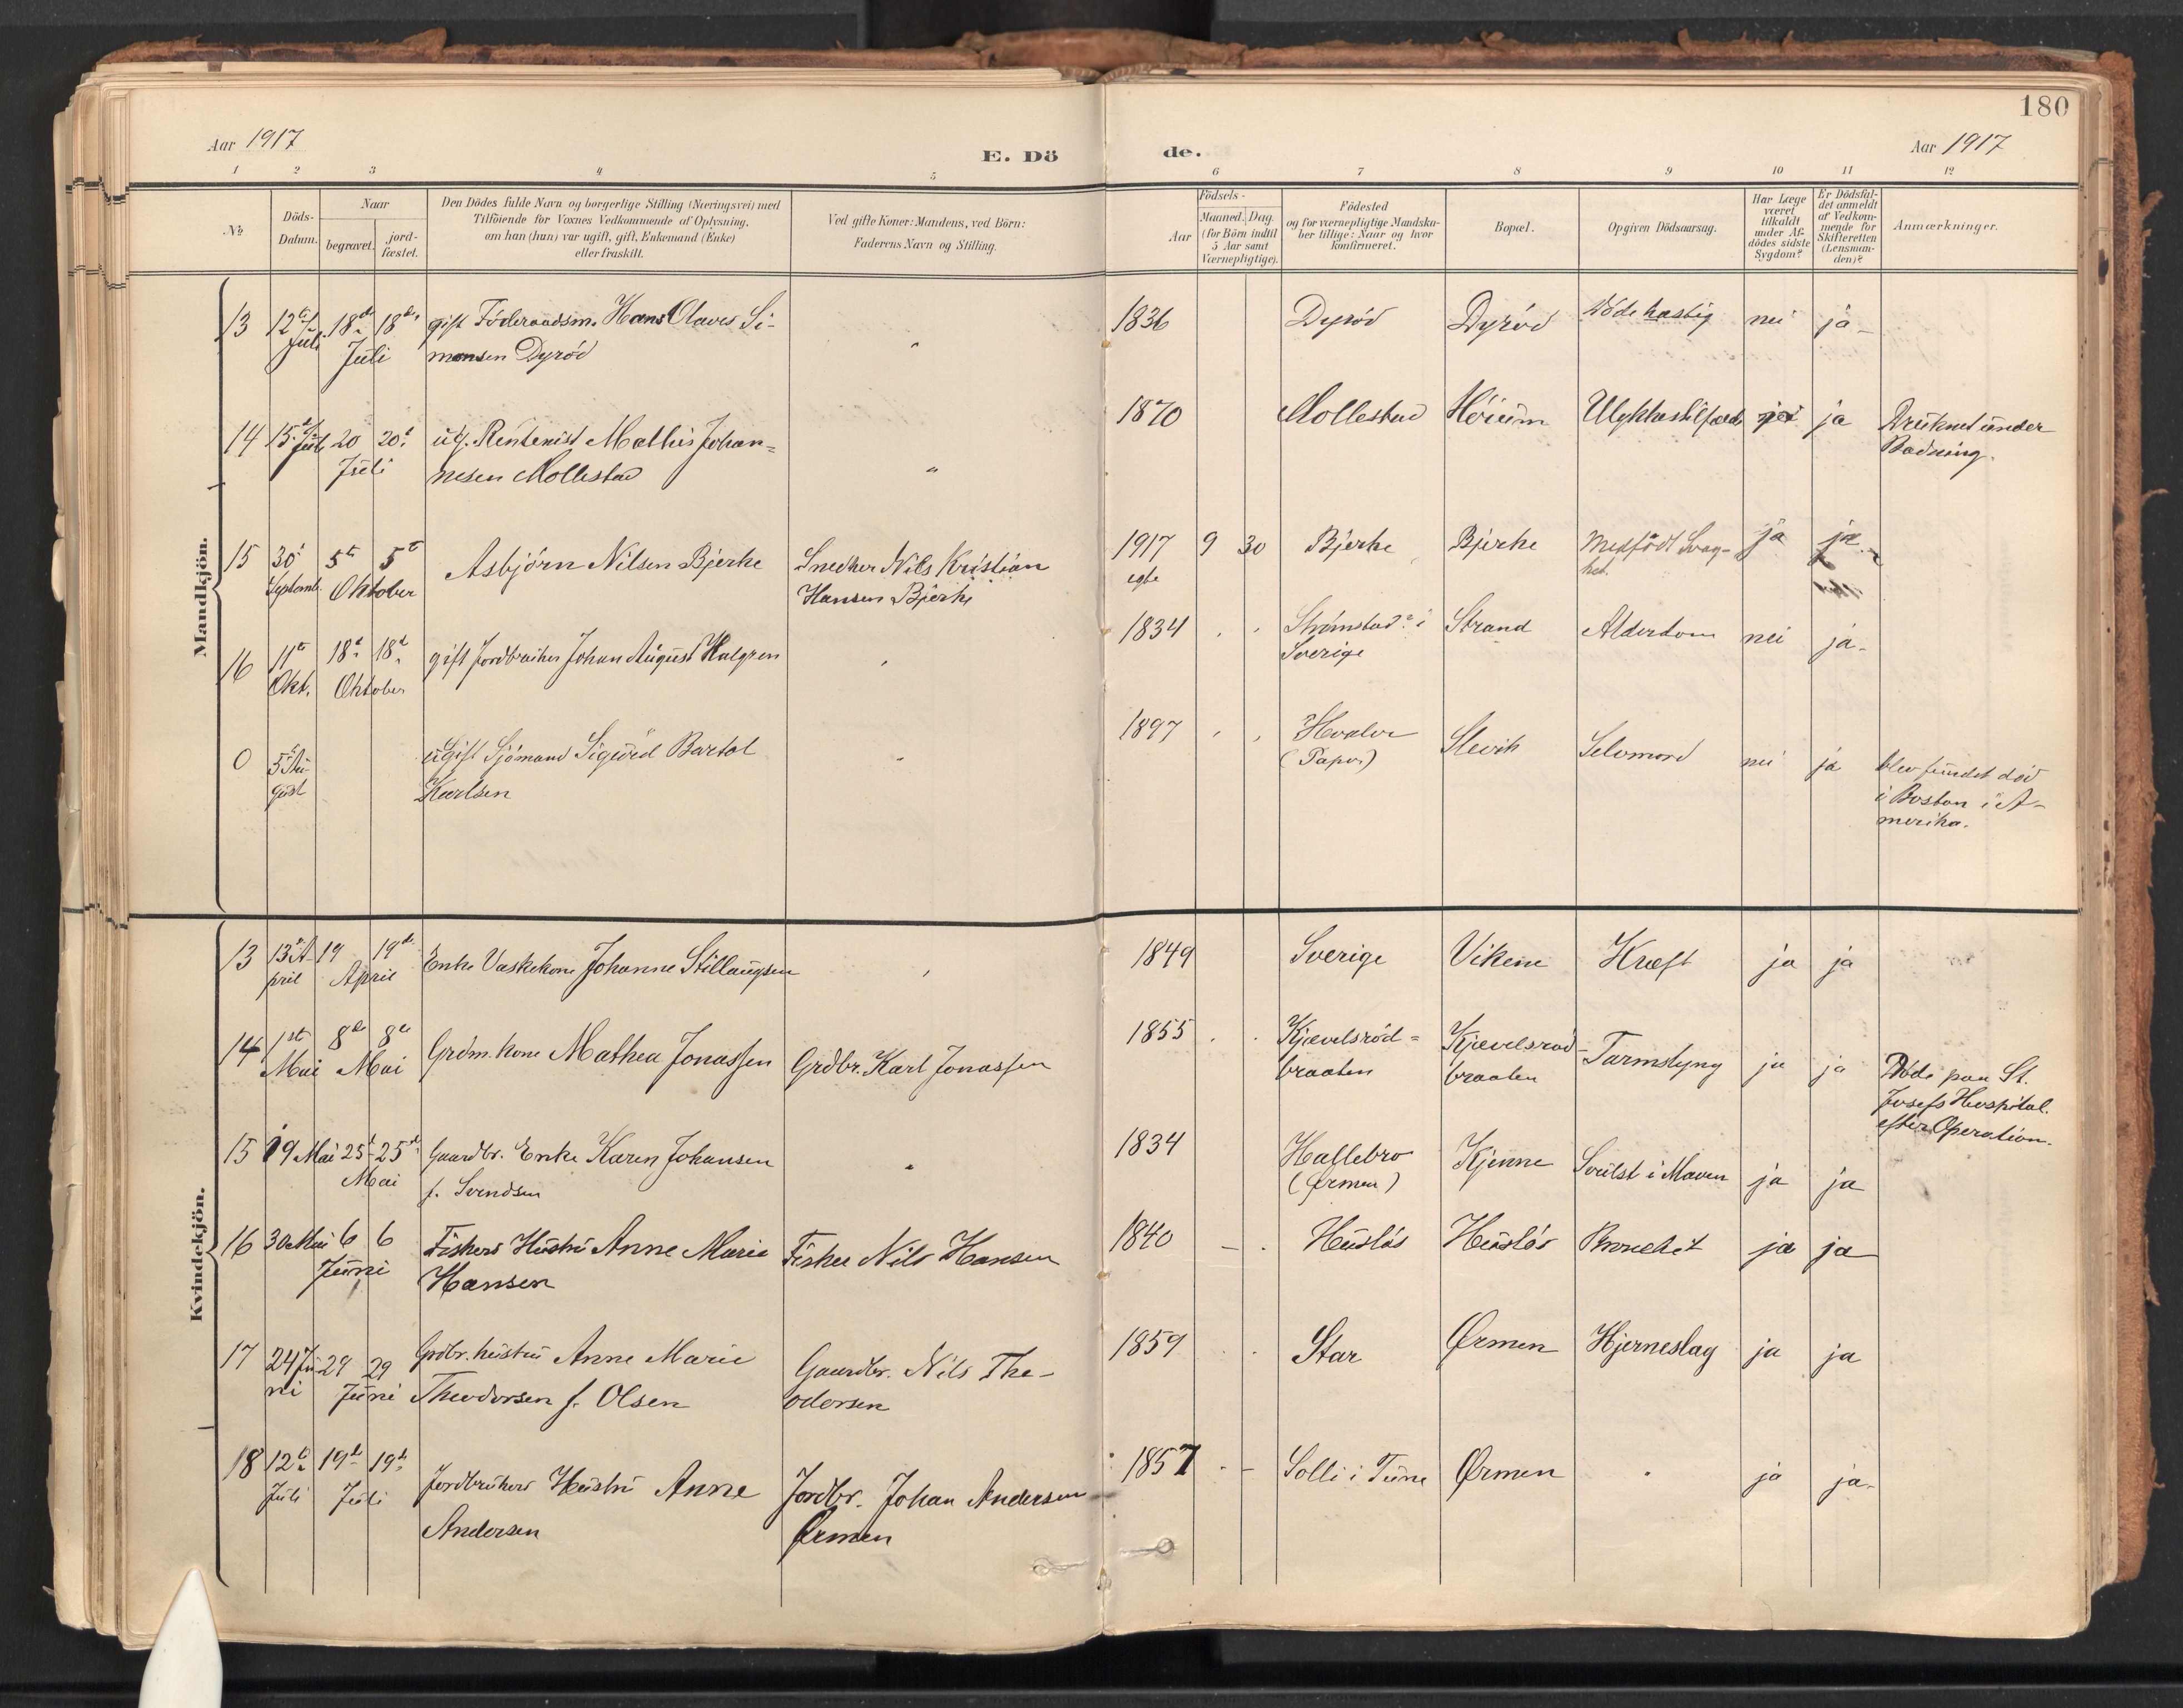 180
Aar 1917
E. Dö
de.
Aar 1917
1 2 3 4 5 6 7 8 9 10 11 12
№
Döds-
Datum.
Naar
begravet.
jord-
fæstet.
Den Dödes fulde Navn og borgerlige Stilling (Næringsvei) med
Tilföiende for Voxnes Vedkommende af Oplysning,
om han (hun) var ugift, gift, Enkemand (Enke)
eller fraskilt.
Ved gifte Koner: Mandens, ved Börn:
Faderens Navn og Stilling.
Födsels-
Aar
Maaned. Dag.
(for Börn indtil
5 Aar samt
Værnepligtige).
Födested
og for værnepligtige Mandska-
ber tillige: Naar og hvor
konfirmeret.
Bopæl.
Opgiven Dödsaarsag.
Har Læge
været
tilkaldt
under Af-
dödes sidste
Sygdom?
Er Dödsfal-
det anmeldt
af Vedkom-
mende for
Skifteretten
(Lensman-
den)?
Anmærkninger.
Mandkjön.
13 12te Juli 18de 18de Juli gift Föderaadsm. Hans Olaves Si-
monsen Dyröd
1836 Dyröd Dyröd Döde hastig nei ja
14 15de Juli 20 20de Juli ug. Rentenist Mathis Johan-
nesen Mollestad
1870 Mollestad Höium ja Druknet under
Badning.
15 30 Septemb. 5te 5te Oktober Asbjörn Nilsen Bjerke Snedker Nils Kristian
Hansen Bjerke
1917 9 30 Bjerke Bjerke Medfödt Svag-
het. ja ja
egte
16 11te Okt. 18de 18de Oktober gift Jordbruiker Johan August Halgren
1834 Strömstad i
Sverige Strand Alderdom nei ja
0 5te Au-
gust ugift Sjömand Sigurd Bartol
Karlsen
1897 Hvaler
(Papor) Slevik Selvmord nei ja blev fundet död
i Boston i A-
merika.
Kvindekjön.
13 13de A-
pril 19 19de April Enke Vaskekone Johanne Stillaugsen
1849 Sverige Vikene Kræft ja ja
14 1ste Mai 8de 8de Mai Grdm. kone Mathea Jonassen Grdbr. Karl Jonassen
1855 Kjævelsröd-
braaten Kjævelsröd-
braaten Tarmslyng ja ja Döde paa St.
Josefs Hospital
efter Operation.
15 19 Mai 25de 25de Mai Gaardbr. Enke Karen Johansen
f. Svendsen
1834 Hallebro
(Ørmen) Kjenne Svulst i Maven ja ja
16 30 Mai 6 6 Juni Fiskers Hustru Anne Marie
Hansen Fisker Nils Hansen
1840 Huslös Huslös ja ja
17 24 Ju-
ni 29 29 Juni Grdbr. hustru Anne Marie
Theodorsen f. Olsen Gaardbr. Nils The-
odorsen
1859 Star Ørmen Hjerneslag ja ja
18 12te Juli 19de 19de Juli Jordbrukers Hustru Anne
Andersen Jordbr. Johan Andersen
Ørmen
1857 Solli i Tune Ørmen ja ja